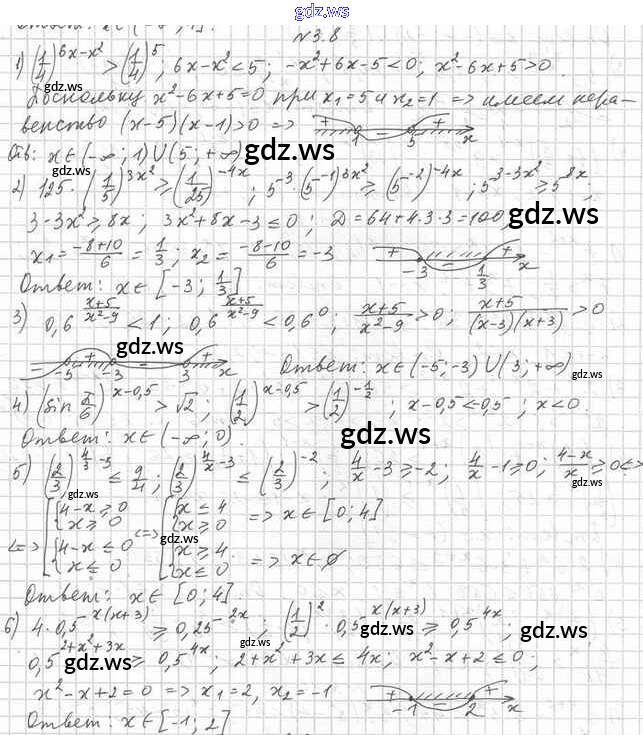 gdz.ws
Ответ: x ∈ [-8; 1].
№3.8
1) (1/4)^(6x-x²) > (1/4)^5 ; 6x-x² < 5 ; -x²+6x-5 < 0 ; x²-6x+5 > 0
gdz.ws
Поскольку x²-6x+5=0 при x₁=5 и x₂=1 => имеем нера-
венство (x-5)(x-1)>0 =>
+ 1 - 5 + x
Отв: x ∈ (-∞; 1) ∪ (5; +∞) gdz.ws
gdz.ws
2) 125·(1/5)^(3x²) ≥ (1/25)^(-4x) ; 5^3·(5^(-1))^(3x²) ≥ (5^(-2))^(-4x) ; 5^(3-3x²) ≥ 5^(8x) ;
3-3x² ≥ 8x ; 3x²+8x-3 ≤ 0 ; D = 64+4·3·3 = 100, gdz.ws
x₁ = (-8+10)/6 = 1/3 ; x₂ = (-8-10)/6 = -3
+ -3 - 1/3 + x
Ответ: x ∈ [-3; 1/3]
3) 0,6^((x+5)/(x²-9)) < 1 ; 0,6^((x+5)/(x²-9)) < 0,6^0 ; (x+5)/(x²-9) > 0 ; (x+5)/((x-3)(x+3)) > 0
gdz.ws
- -5 + -3 - 3 + x
Ответ: x ∈ (-5; -3) ∪ (3; +∞)
gdz.ws
4) (sin π/6)^(x-0,5) > √2 ; (1/2)^(x-0,5) > (1/2)^(-1/2) ; x-0,5 < -0,5 ; x < 0.
Ответ: x ∈ (-∞; 0). gdz.ws
5) (2/3)^(4/x-3) ≤ 9/4 ; (2/3)^(4/x-3) ≤ (2/3)^(-2) ; 4/x-3 ≥ -2 ; 4/x-1 ≥ 0 ; (4-x)/x ≥ 0 <=>
gdz.ws gdz.ws
<=> [ { 4-x ≥ 0 <=> [ { x ≤ 4 => x ∈ [0; 4]
x ≥ 0 x ≥ 0
{ 4-x ≤ 0 { x ≥ 4 => x ∈ ∅
x ≤ 0 x ≤ 0
gdz.ws
Ответ: x ∈ [0; 4].
6) 4·0,5^(x(x+3)) ≥ 0,25^(2x) ; (1/2)^2·0,5^(x(x+3)) ≥ 0,5^(4x) ;
gdz.ws gdz.ws gdz.ws
0,5^(2+x²+3x) ≥ 0,5^(4x) ; 2+x²+3x ≤ 4x ; x²-x+2 ≤ 0 ;
gdz.ws
x²-x+2=0 => x₁=2, x₂=-1
+ -1 - 2 + x
Ответ: x ∈ [-1; 2]